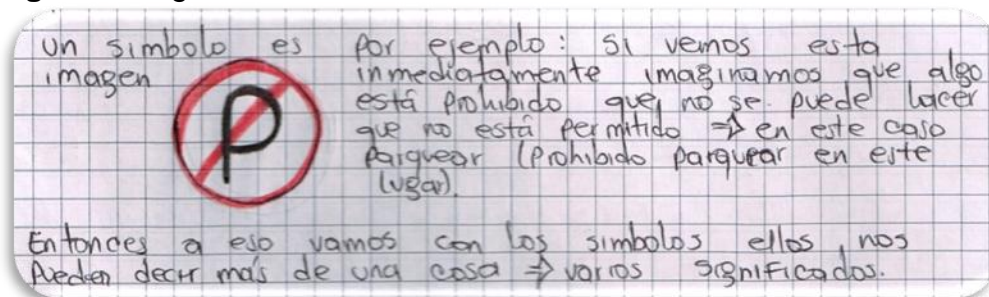 un simbolo es por ejemplo: si vemos esta
imagen inmediatamente imaginamos que algo
está prohibido que no se puede hacer
que no está permitido ⇒ en este caso
P parquear (Prohibido parquear en este
lugar).
Entonces a eso vamos con los simbolos ellos nos
Pueden decir más de una cosa ⇒ varios significados.